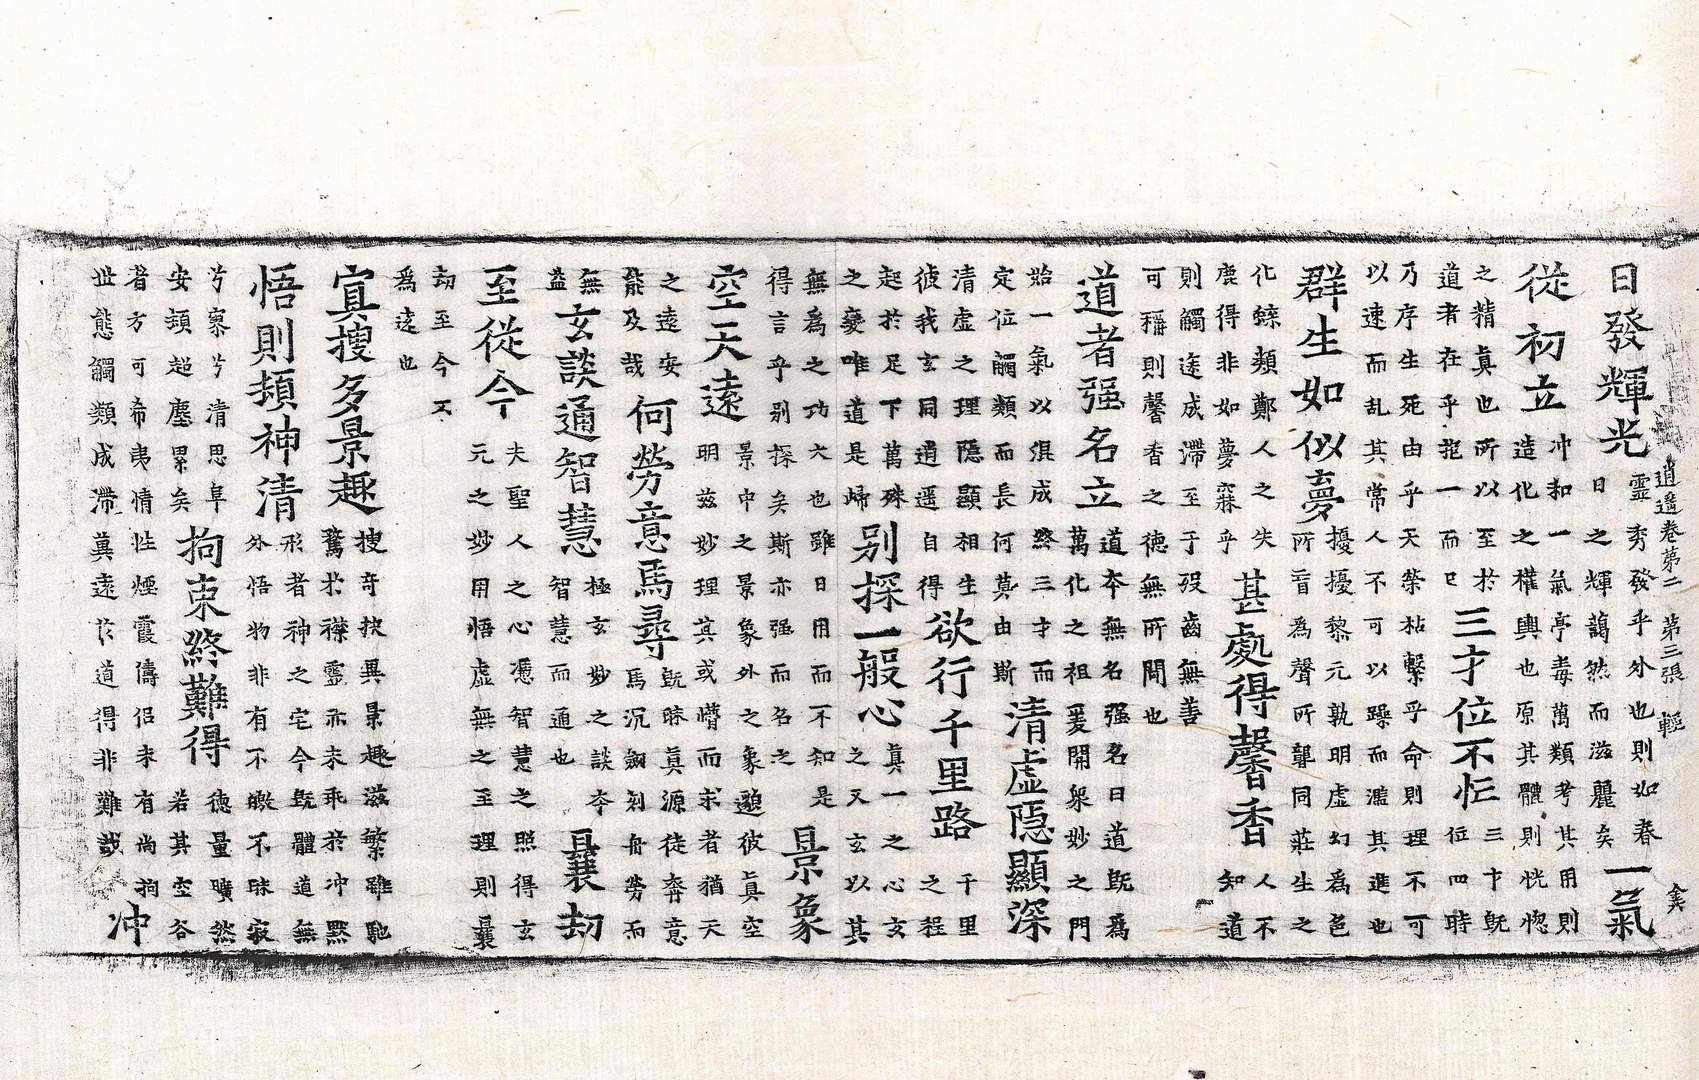 逍遥卷第二　第三張　輕
日發輝光
靈秀發乎外也則如春
日之輝藹然而滋麗矣
一氣
從初立
冲和一氣亭毒萬類考其用則
造化之權輿也原其體則恍惚
之精真也所以至於
道者在乎抱一而已
三才位不忙
三才既
位四時
乃序生死由乎天榮枯繫乎命則理不可
以速而乱其常人不可以躁而濫其進也
群生如似夢
擾擾黎元孰明虛幻為色
所盲為聲所聾同莊生之
化蝶類鄭人之失
鹿得非如夢寐乎
甚處得馨香
人不
知道
則觸途成滯至于歿齒無善
可稱則馨香之德無所聞也
道者强名立
道本無名强名曰道既為
萬化之祖爰開衆妙之門
始一氣以俱成終三才而
定位觸類而長何莫由斯
清虛隱顯深
清虛之理隱顯相生
彼我玄同逍遥自得
欲行千里路
千里
之程
起於足下萬殊
之變唯道是歸
别探一般心
真一之心玄
之又玄以其
無為之功大也雖日用而不知是
得言乎别探矣斯亦强而名之
景象
空天遠
景中之景象外之象邈彼真空
明兹妙理其或懵而求者猶天
之遠安
能及哉
何勞意馬尋
既昧真源徒奔意
馬沉劒刻舟勞而
無
益
玄談通智慧
極玄妙之談本
智慧而通也
曩劫
至從今
夫聖人之心憑智慧之照得玄
元之妙用悟虛無之至理則曩
劫至今不
為遠也
寘搜多景趣
搜奇抉異景趣滋繁雖馳
騖於襟靈亦未乖於冲黙
悟則頓神清
形者神之宅今既體道無
外悟物非有不曒不昧寂
兮寥兮清思阜
安頓超塵累矣
拘束終難得
德量曠然
若其空谷
者方可希夷情性煙霞儔侣未有尚拘
世態觸類成滯莫遠於道得非難哉
冲